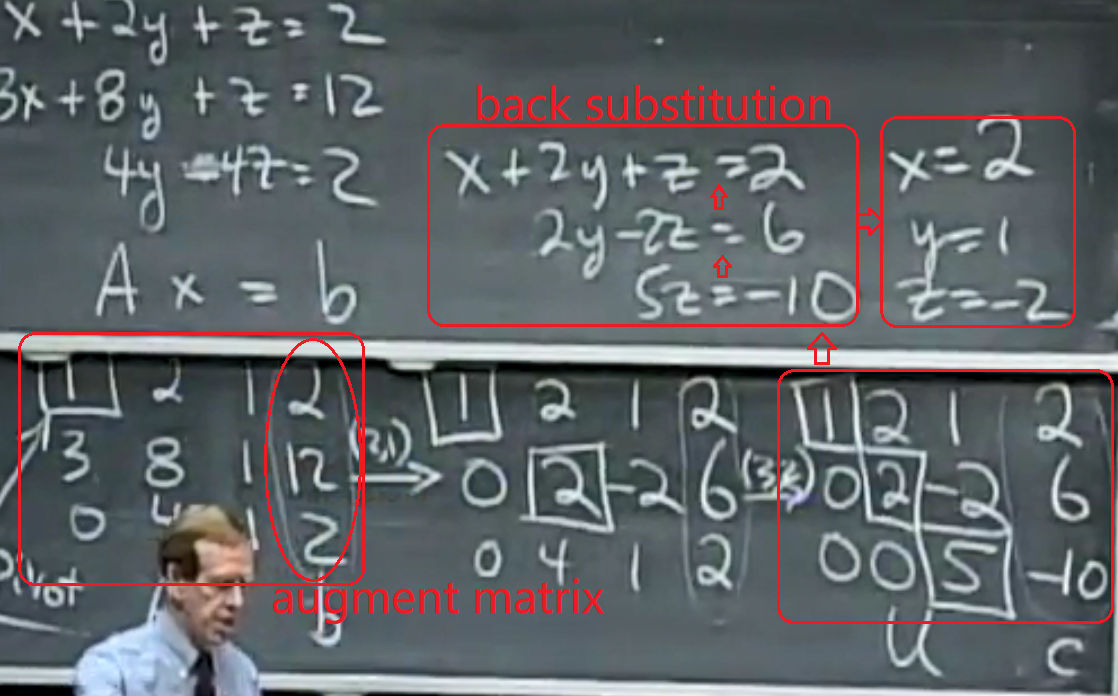 x + 2y + z = 2
3x + 8y + z = 12
4y -4z = 2
Ax = b
back substitution
x + 2y + z = 2
2y - 2z = 6
5z = -10
x = 2
y = 1
z = -2
1 2 1 2
3 8 1 12
0 4 1 2
Pivot
augment matrix
b
(2,1)
1 2 1 2
0 2 -2 6
0 4 1 2
(3,2)
1 2 1 2
0 2 -2 6
0 0 5 -10
U c